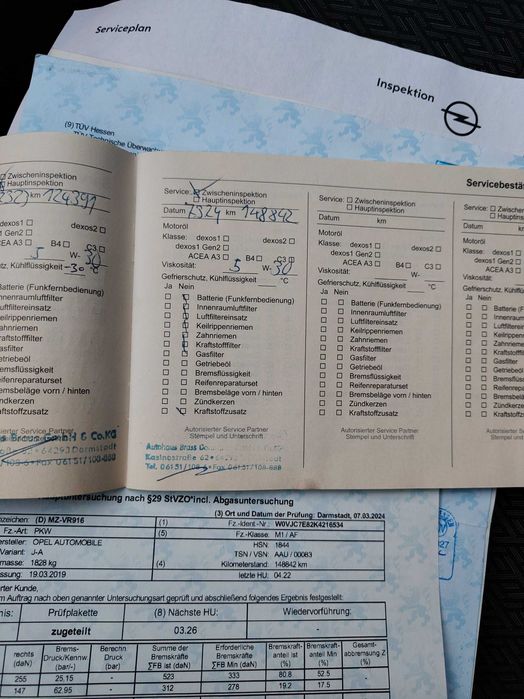 Serviceplan
Inspektion
(9) TÜV Hessen
Servicebestä
Zwischeninspektion
Hauptinspektion
km 124391
dexos1 dexos2
Gen2
ACEA A3 B4 C3
5 W- 30
Kühlflüssigkeit -30 °C
Batterie (Funkfernbedienung)
Innenraumluftfilter
Luftfiltereinsatz
Keilrippenriemen
Zahnriemen
Kraftstofffilter
Gasfilter
Getriebeöl
Bremsflüssigkeit
Reifenreparaturset
Bremsbeläge vorn / hinten
Zündkerzen
Kraftstoffzusatz
Service: Zwischeninspektion
Hauptinspektion
Datum 7324 km 148842
Motoröl
Klasse: dexos1 dexos2
dexos1 Gen2
ACEA A3 B4 C3
Viskosität: 5 W- 30
Gefrierschutz, Kühlflüssigkeit °C
Ja Nein
Batterie (Funkfernbedienung)
Innenraumluftfilter
Luftfiltereinsatz
Keilrippenriemen
Zahnriemen
Kraftstofffilter
Gasfilter
Getriebeöl
Bremsflüssigkeit
Reifenreparaturset
Bremsbeläge vorn / hinten
Zündkerzen
Kraftstoffzusatz
Autorisierter Service Partner
Stempel und Unterschrift
Autohaus Brass
Kasinostraße 62
Tel. 06151/108-0 Fax 06151/108-888
Service: Zwischeninspektion
Hauptinspektion
Datum km
Motoröl
Klasse: dexos1 dexos2
dexos1 Gen2
ACEA A3 B4 C3
Viskosität: W-
Gefrierschutz, Kühlflüssigkeit °C
Ja Nein
Batterie (Funkfernbedienung)
Innenraumluftfilter
Luftfiltereinsatz
Keilrippenriemen
Zahnriemen
Kraftstofffilter
Gasfilter
Getriebeöl
Bremsflüssigkeit
Reifenreparaturset
Bremsbeläge vorn / hinten
Zündkerzen
Kraftstoffzusatz
Autorisierter Service Partner
Stempel und Unterschrift
Service:
Datum
Motoröl
Klasse: dexos1
dexos1 G
ACEA A3
Viskosität:
Gefrierschutz, Kü
Ja Nein
Hauptuntersuchung nach §29 StVZO*incl. Abgasuntersuchung
(3) Ort und Datum der Prüfung: Darmstadt, 07.03.2024
zeichen: (D) MZ-VR916 (1) Fz.-Ident.-Nr.: W0VJC7E82K4216534
Fz.-Art: PKW (5) Fz.-Klasse: M1 / AF
ersteller: OPEL AUTOMOBILE HSN: 1844
Variant: J-A TSN / VSN: AAU / 00083
masse: 1828 kg (4) Kilometerstand: 148842 km
assung: 19.03.2019 letzte HU: 04.22
rter Kunde,
m Auftrag nach oben genannter Untersuchungsart geprüft und abschließend folgendes Ergebnis festgestellt:
nis: Prüfplakette (8) Nächste HU: Wiedervorführung:
zugeteilt 03.26 -
rechts (daN) Brems-Druck/Kennw. (bar/-) Berechn Druck (bar) Summe der Bremskräfte ∑FB ist (daN) Erforderliche Bremskräfte ∑FB Min (daN) Bremskraft-anteil Ist (%) Bremskraft-anteil Min (%) Gesamt-abbremsung Z (%)
255 25,15 523 333 80.8 52.5
147 62.95 - 312 278 19.2 17.5